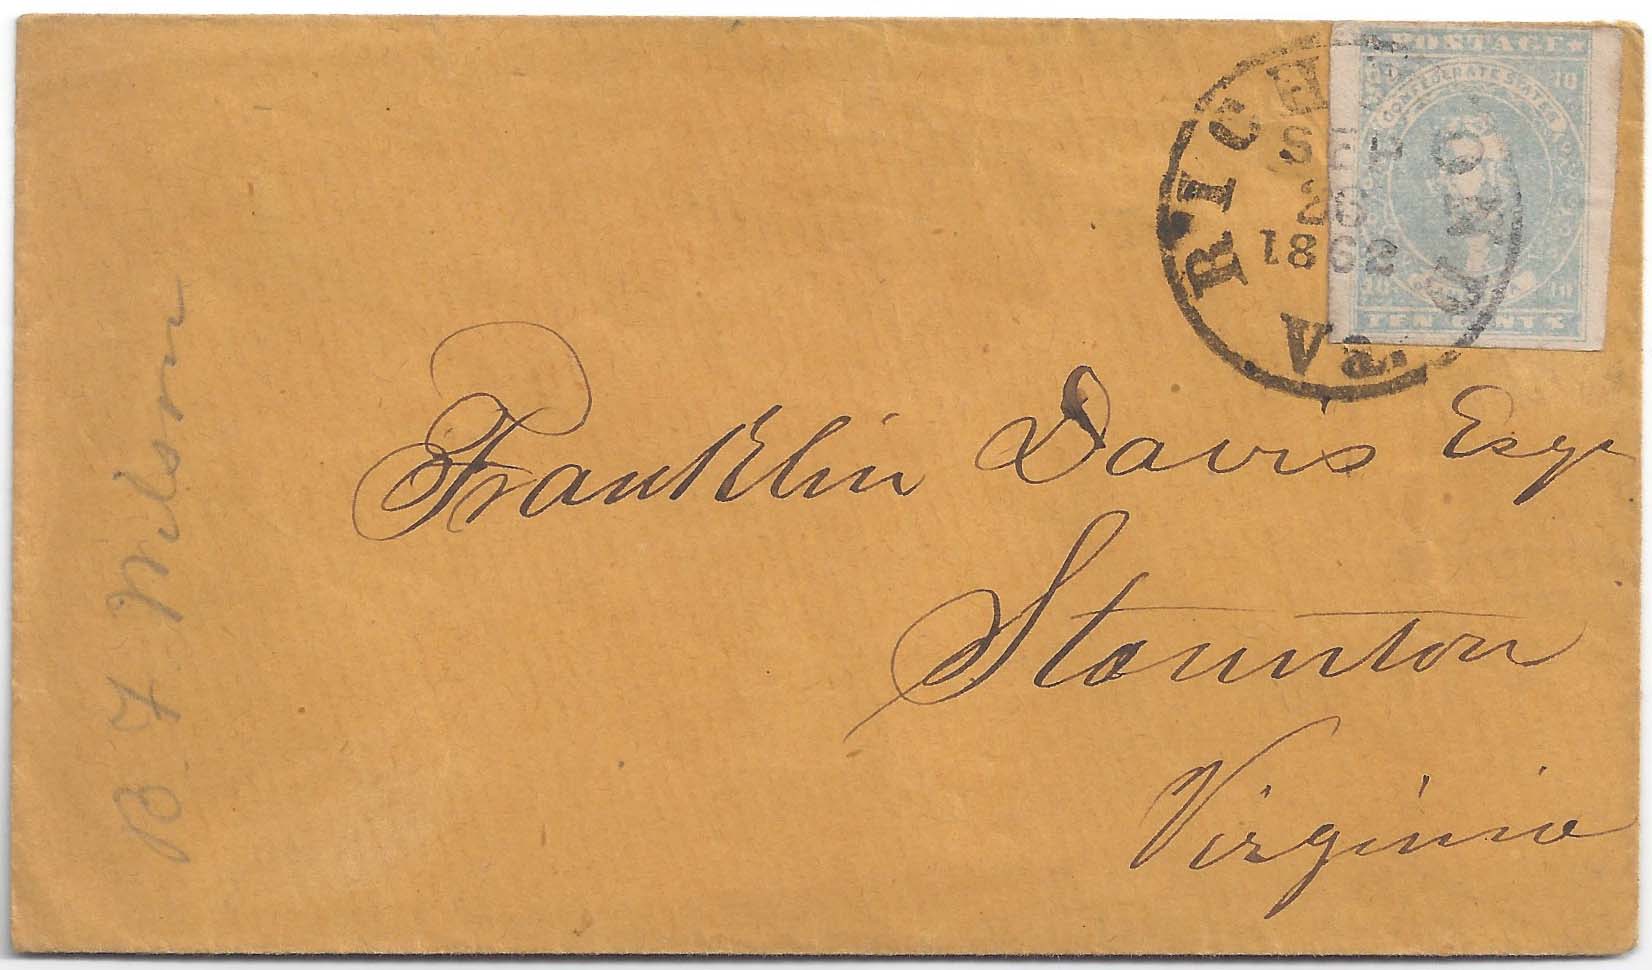 POSTAGE
CONFEDERATE STATES
10 10
10 10
TEN CENTS
RICHMOND
SEP
20
1862
Va.
Franklin Davis Esqr
Staunton
Virginia
B. F. Wilson